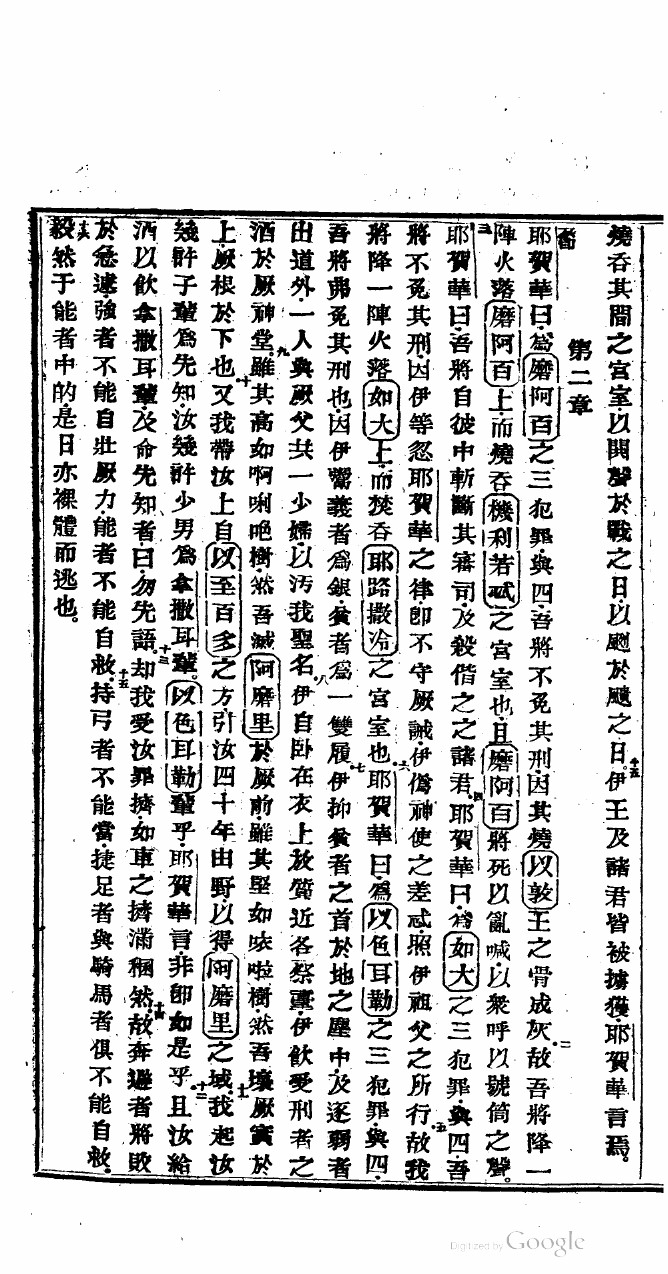 燒吞其間之宮室以鬨聲於戰之日以颶於颶之日。十五伊王及諸君皆被擄獲耶賀華言焉。
第二章
耶賀華曰為磨阿百之三犯罪與四吾將不免其刑因其燒以敦王之骨成灰二故吾將降一
陣火落磨阿百上而燒吞機利若忒之宮室也且磨阿百將死以亂喊以衆呼以號筒之聲。
三耶賀華曰吾將自彼中斬斷其審司及殺偕之之諸君四耶賀華曰為如大之三犯罪與四吾
將不免其刑因伊等忽耶賀華之律卽不守厥誡伊偽神使之差忒照伊祖父之所行五故我
將降一陣火落如大上而焚吞耶路撒冷之宮室也六耶賀華曰為以色耳勒之三犯罪與四
吾將弗免其刑也因伊鬻義者為銀貧者為一雙履七伊抑貧者之首於地之塵中及逐弱者
出道外一人與厥父共一少嬬以汚我聖名八伊自卧在衣上放質近各祭臺伊飲受刑者之
酒於厥神堂。九雖其高如啊唎㖠樹然吾滅阿磨里於厥前雖其堅如㕵啦樹然吾壞厥實於
上厥根於下也十又我帶汝上自以至百多之方引汝四十年由野以得阿磨里之域十一我起汝
幾許子輩為先知汝幾許少男為拿撒耳輩。以色耳勒輩乎耶賀華言非卽如是乎十二且汝給
酒以飲拿撒耳輩及命先知者曰勿先語十三却我受汝罪擠如車之擠滿稇然十四故奔避者將敗
於急逮強者不能自壯厥力能者不能自救十五持弓者不能當捷足者與騎馬者俱不能自救。
十六毅然于能者中的是日亦裸體而逃也。
Digitized by Google